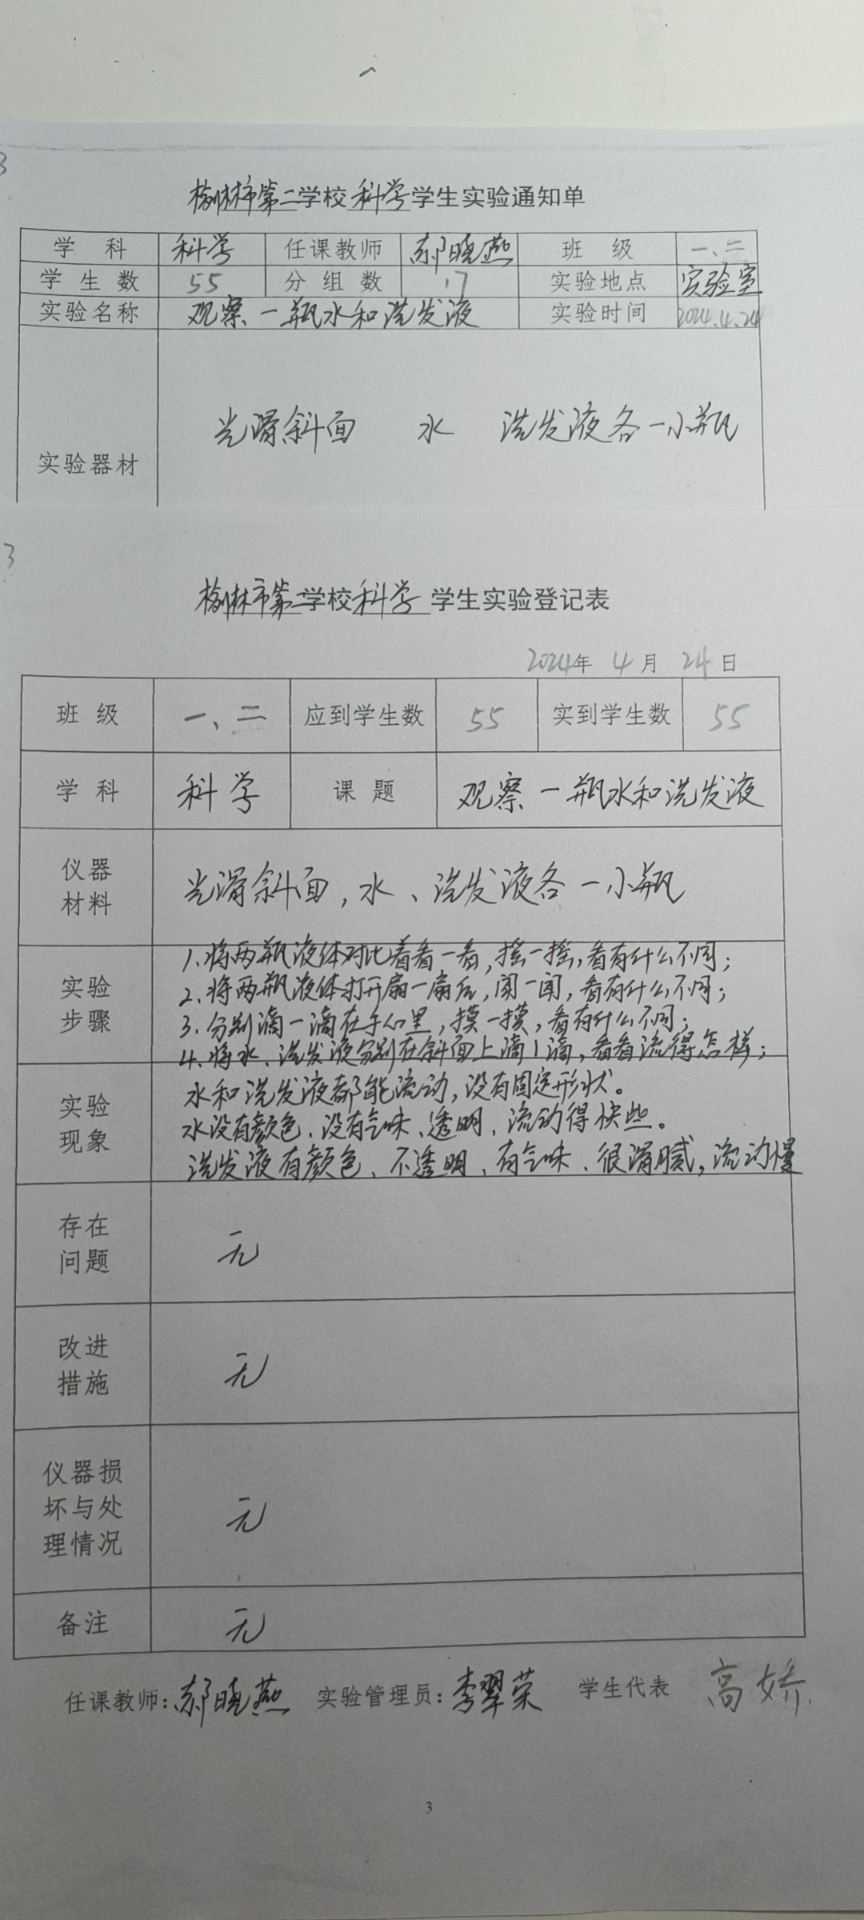 3
榆林市第二学校科学学生实验通知单
学科 科学 任课教师 郝晓燕 班级 一、二
学生数 55 分组数 17 实验地点 实验室
实验名称 观察一瓶水和洗发液 实验时间 2024.4.24
实验器材 光滑斜面 水 洗发液各一小瓶
3
榆林市第二学校科学学生实验登记表
2024年4月24日
班级 一、二 应到学生数 55 实到学生数 55
学科 科学 课题 观察一瓶水和洗发液
仪器材料 光滑斜面,水、洗发液各一小瓶
实验步骤
1.将两瓶液体对比着看一看,摇一摇,看有什么不同;
2.将两瓶液体打开扇一扇后,闻一闻,看有什么不同;
3.分别滴一滴在手心里,摸一摸,看有什么不同;
4.将水、洗发液分别在斜面上滴1滴,看看流得怎样;
实验现象
水和洗发液都能流动,没有固定形状。
水没有颜色、没有气味、透明、流动得快些。
洗发液有颜色、不透明、有气味、很滑腻,流动慢
存在问题 无
改进措施 无
仪器损坏与处理情况 无
备注 无
任课教师:郝晓燕 实验管理员:李翠荣 学生代表 高娇
3